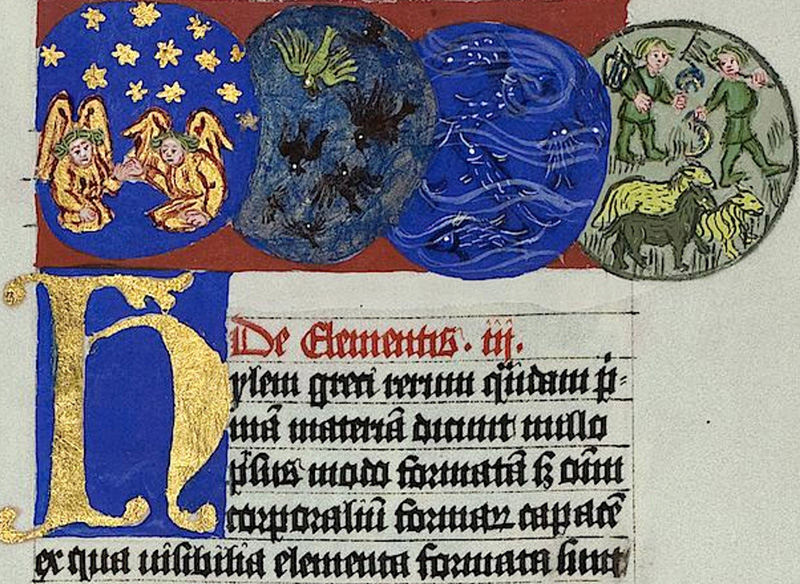 De Elementis. iij.
Hylem greci rerum quādam p̄-
mā materiā dicunt nullo
p̄sus modo formatā sꝫ oīm
corporaliū formaꝝ capacē
ex qua uisibilia elementa formata sunt